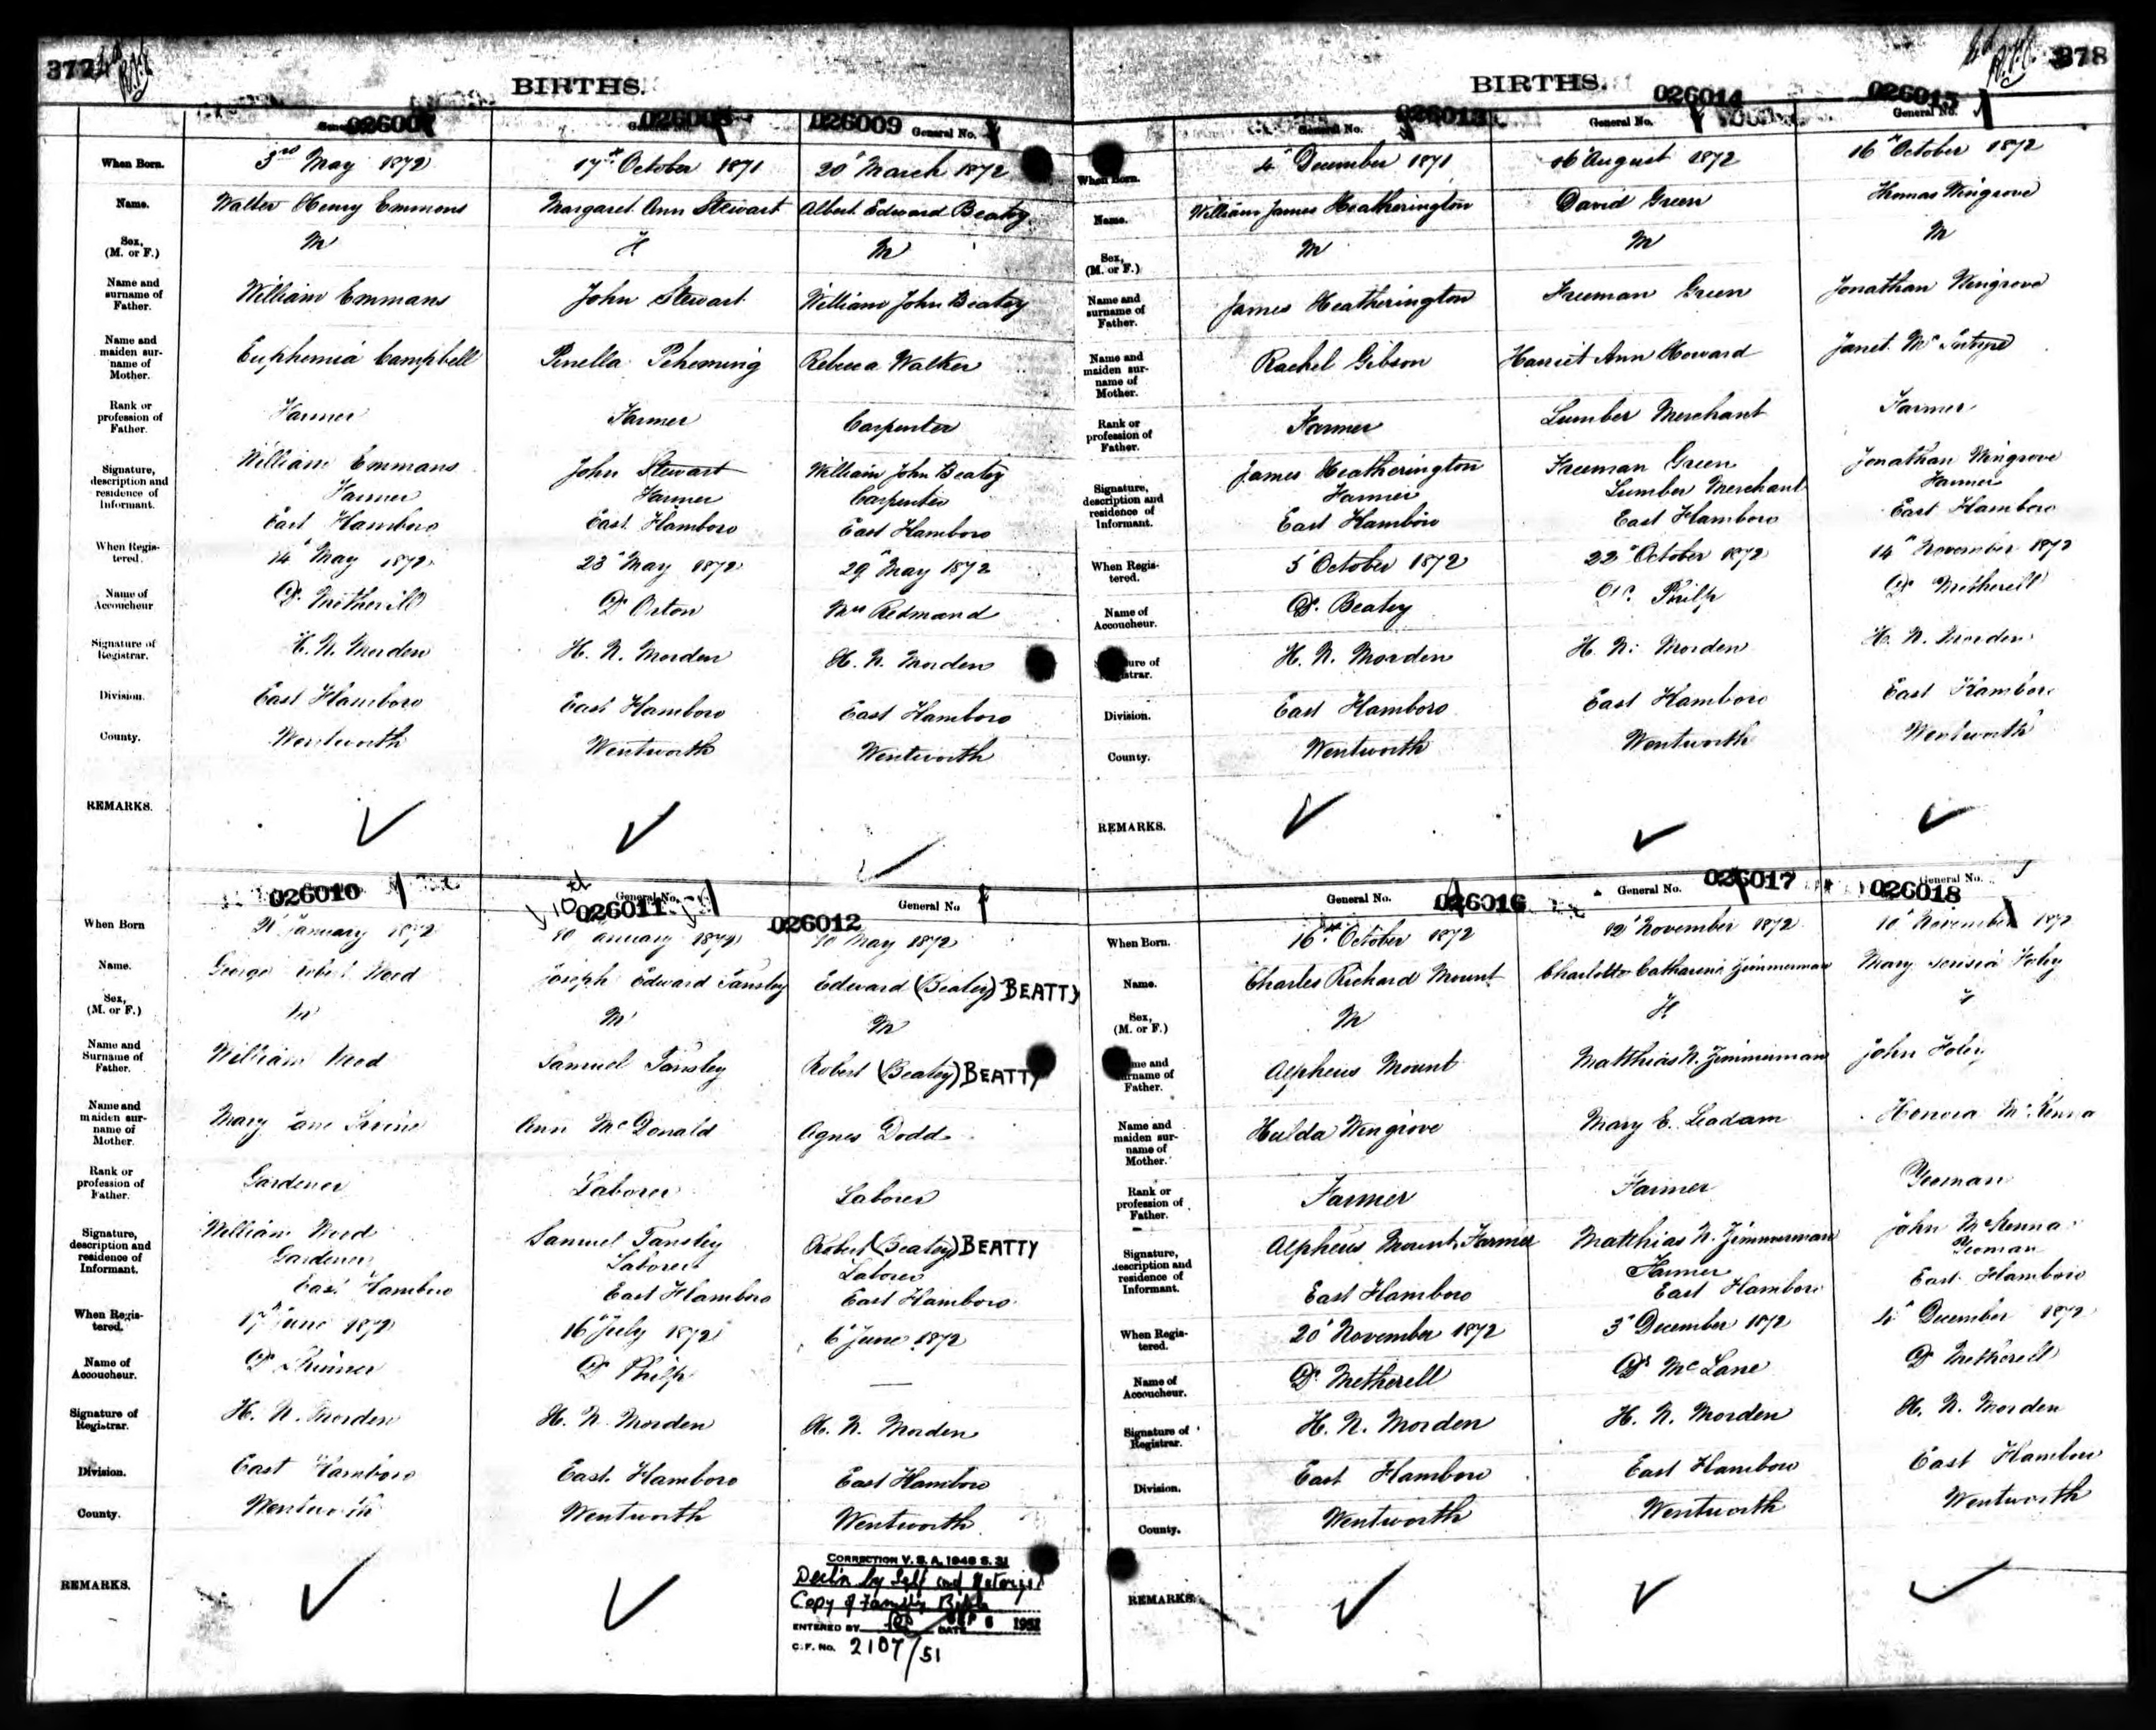 377
BIRTHS.
026007
026008
026009 General No.
When Born. 3rd May 1872 17th October 1871 20" March 1872
Name. Walter Henry Emmons Margaret Ann Stewart Albert Edward Beatey
Sex, (M. or F.) M F M
Name and surname of Father. William Emmans John Stewart William John Beatey
Name and maiden surname of Mother. Euphemia Campbell Rebecca Walker
Rank or profession of Father. Farmer Farmer Carpenter
Signature, description and residence of Informant. William Emmans John Stewart William John Beatey
Farmer Farmer Carpenter
East Flamboro East Flamboro East Flamboro
When Registered. 14" May 1872 23" May 1872 29" May 1872
Name of Accoucheur Dr. Metherill Dr Orton Mrs Redmand
Signature of Registrar. H. N. Morden H. N. Morden H. N. Morden
Division. East Flamboro East Flamboro East Flamboro
County. Wentworth Wentworth Wentworth
REMARKS.
026010
General No. 10th 026011
026012 General No
When Born January 1872 10 anuary 1872 10 May 1872
Name. George obert Wood Joseph Edward Tansley Edward (Beatey) BEATTY
Sex, (M. or F.) M M M
Name and Surname of Father. William Wood Samuel Tansley Robert (Beatey) BEATTY
Name and maiden surname of Mother. Mary ane Irvine Ann McDonald Agnes Dodd
Rank or profession of Father. Gardener Laborer Laborer
Signature, description and residence of Informant. William Wood Samuel Tansley Robert (Beatey) BEATTY
Gardener Laborer Laborer
East Flamboro East Flamboro East Flamboro
When Registered. June 1872 16" July 1872 6" June 1872
Name of Accoucheur. Dr Skinner Dr Philp —
Signature of Registrar. H. N. Morden H. N. Morden H. N. Morden
Division. East Flamboro East Flamboro East Flamboro
County. Wentworth Wentworth Wentworth
REMARKS.
CORRECTION V. S. A. 1948 S. 31
Decl'n by Self and Notorial
Copy of Family Bible
ENTERED BY DATE SEP 6 1951
C. F. No. 2107/51
378
BIRTHS.
General No. 026013
026014 General No.
026015 General No.
When Born. 4" December 1871 16 August 1872 16" October 1872
Name. William James Heatherington David Green Thomas Wingrove
Sex, (M. or F.) M M M
Name and surname of Father. James Heatherington Freeman Green Jonathan Wingrove
Name and maiden surname of Mother. Rachel Gibson Harriet Ann Howard Janet McIntyre
Rank or profession of Father. Farmer Lumber Merchant Farmer
Signature, description and residence of Informant. James Heatherington Freeman Green Jonathan Wingrove
Farmer Lumber Merchant Farmer
East Flamboro East Flamboro East Flamboro
When Registered. 5" October 1872 22" October 1872 14" November 1872
Name of Accoucheur. Dr. Beatey Dr. Philp Dr Metherell
Signature of Registrar. H. N. Morden H. N. Morden H. N. Morden
Division. East Flamboro East Flamboro East Flamboro
County. Wentworth Wentworth Wentworth
REMARKS.
General No. 026016
General No. 026017
026018 General No.
When Born. 16th October 1872 12" November 1872 10" November 1872
Name. Charles Richard Mount Charlotte Catharine Zimmerman Mary Foley
Sex, (M. or F.) M F F
Name and surname of Father. Alpheus Mount Matthias N. Zimmerman John Foley
Name and maiden surname of Mother. Hulda Wingrove Mary E. Leadam Honora McKenna
Rank or profession of Father. Farmer Farmer Yeoman
Signature, description and residence of Informant. Alpheus Mount, Farmer Matthias N. Zimmerman John McKenna
Farmer Yeoman
East Flamboro East Flamboro East Flamboro
When Registered. 20" November 1872 3" December 1872 4" December 1872
Name of Accoucheur. Dr. Metherell Dr McLane Dr Metherell
Signature of Registrar. H. N. Morden H. N. Morden H. N. Morden
Division. East Flamboro East Flamboro East Flamboro
County. Wentworth Wentworth Wentworth
REMARKS.